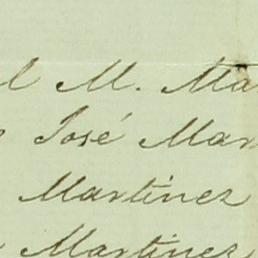 l M. Ma
José Mar
Martinez
Martinez